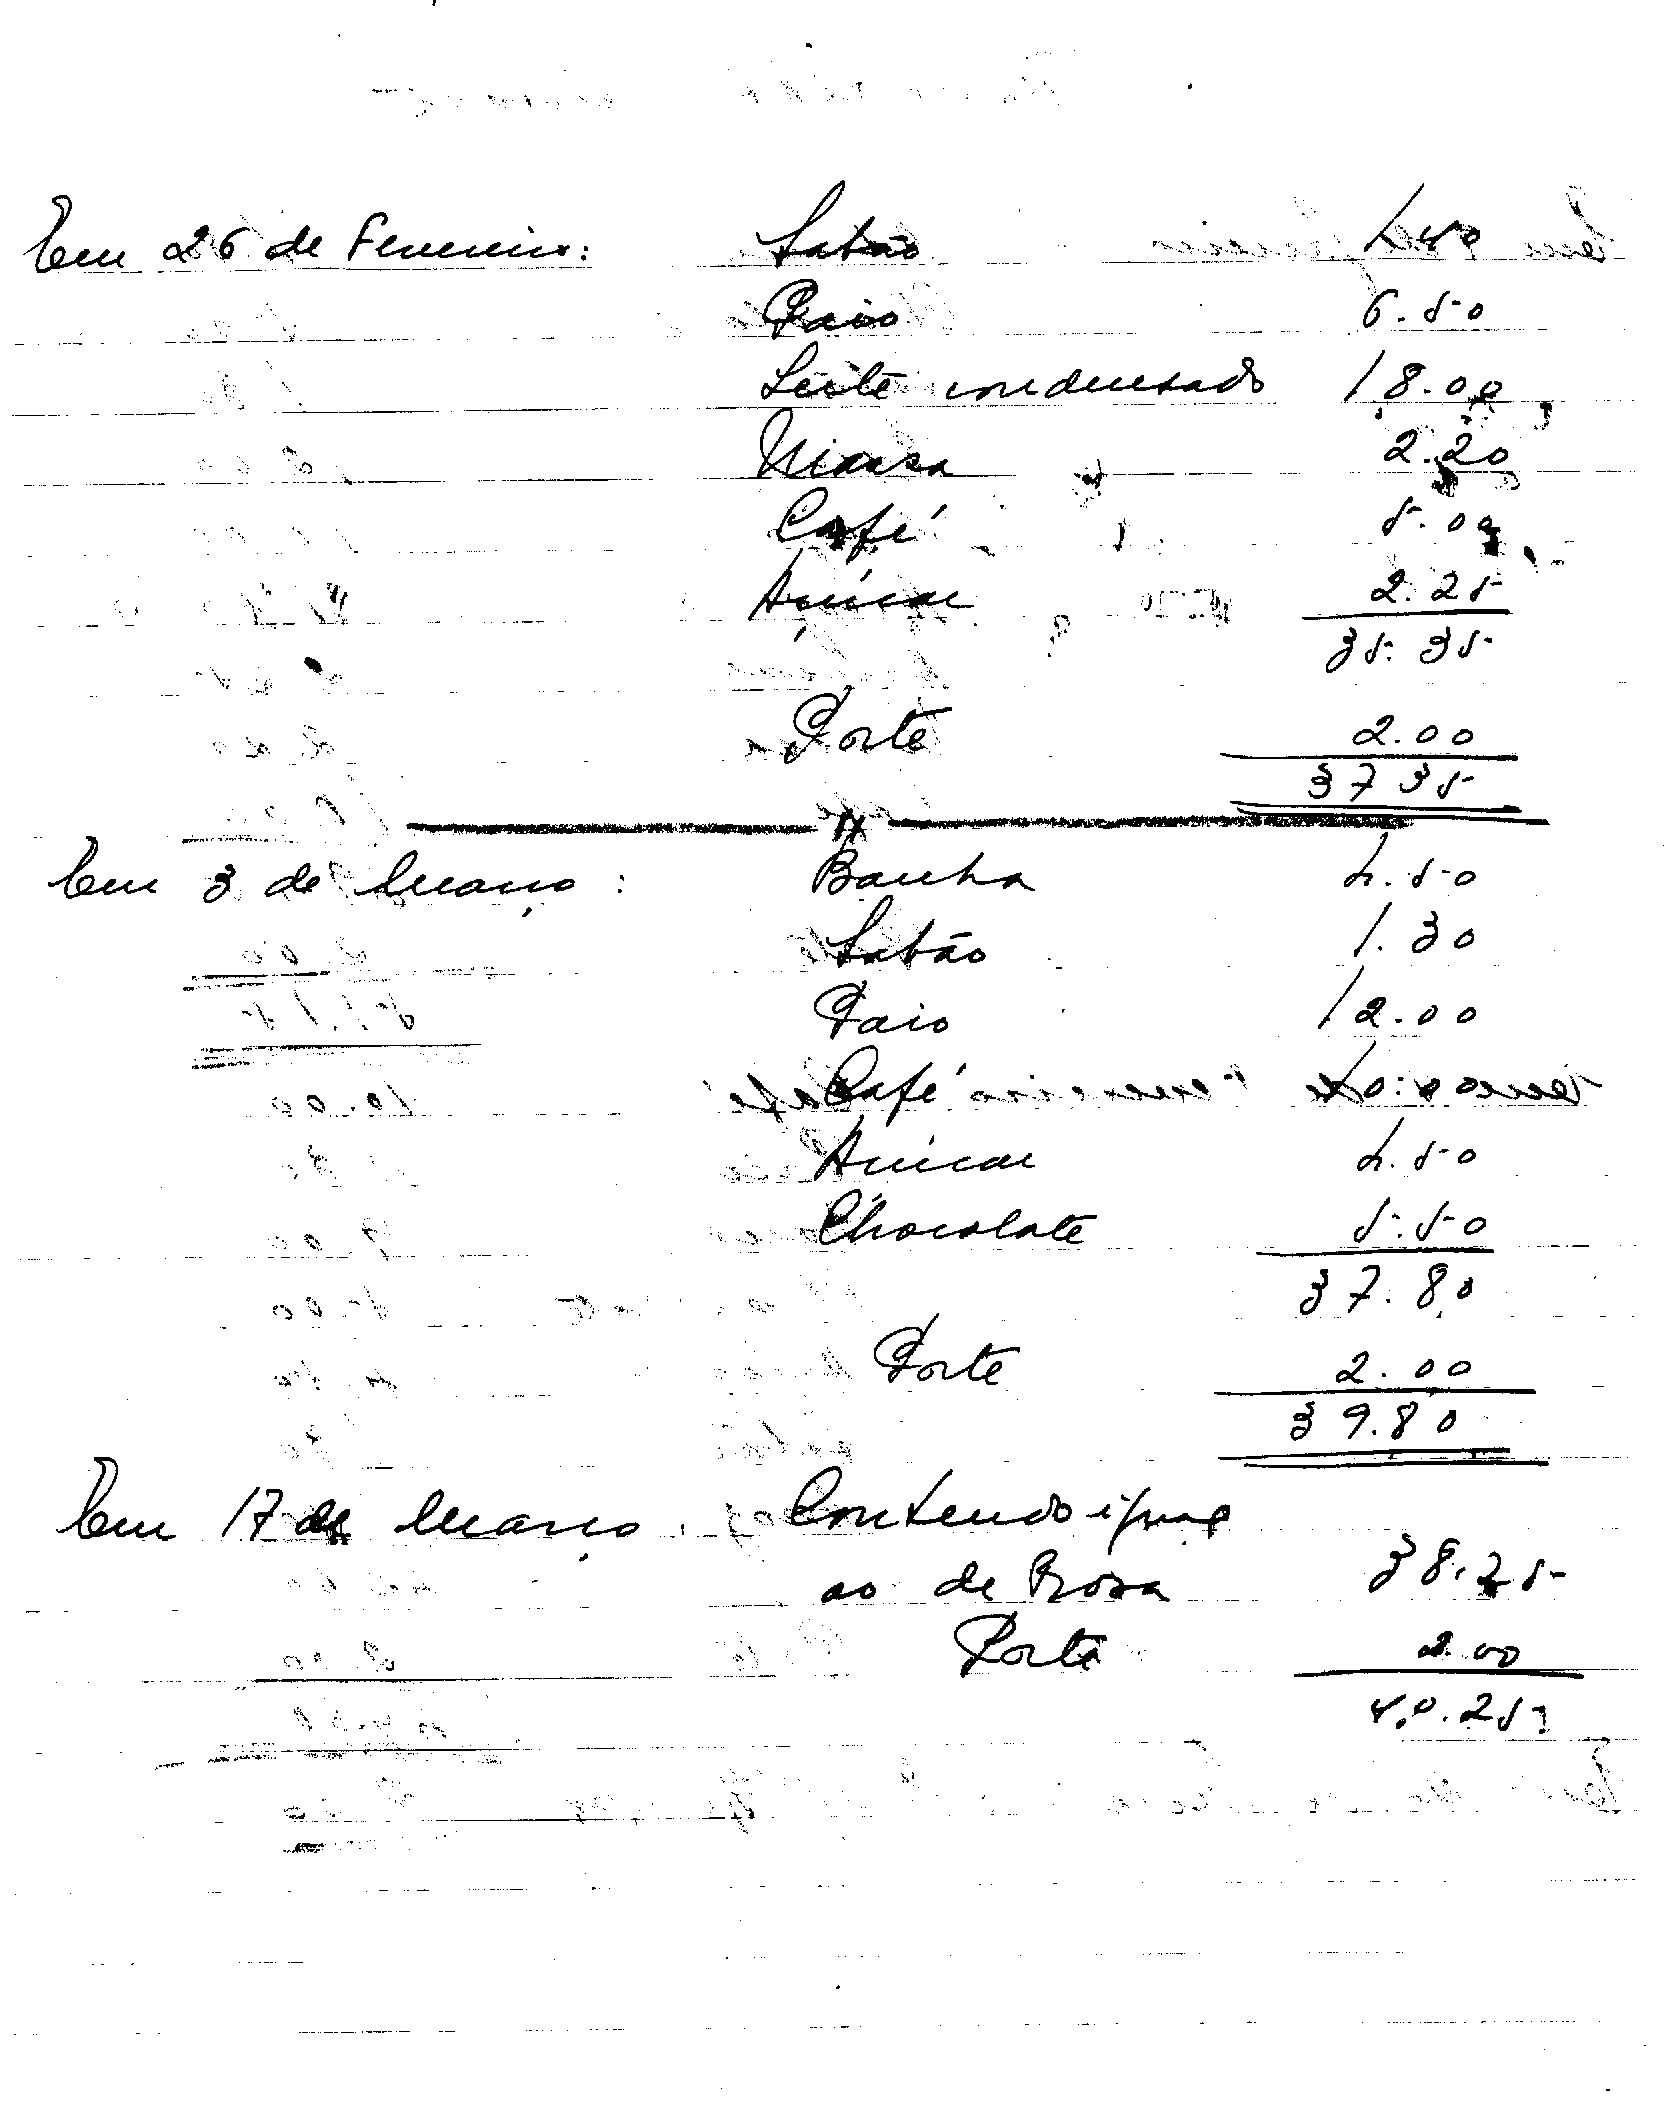 Em 26 de Fevereiro: Sabão 1.40
Paio 6.50
Leite condensado 18.00
Massa 2.20
Café 5.00
Açúcar 2.25
35.35
Porte 2.00
37 35
Em 3 de Março: Banha 4.50
Sabão 1.30
Paio 12.00
Café 10.00
Açúcar 4.50
Chocolate 5.50
37.80
Porte 2.00
39.80
Em 17 de Março. Contendo igual
ao de Rosa 38.25
Porte 2.00
40.25